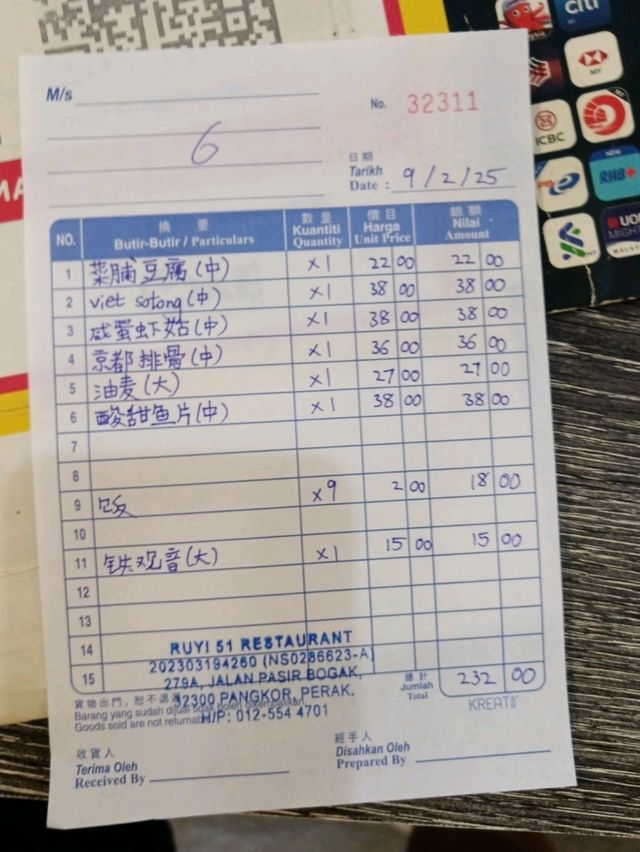 citi
MY
ICBC
NEW
RHB
M/s
No. 32311
6
日期
Tarikh
Date : 9/2/25
NO.
摘要
Butir-Butir / Particulars
數量
Kuantiti
Quantity
價目
Harga
Unit Price
銀額
Nilai
Amount
1 菜脯豆腐(中) x1 22 00 22 00
2 viet sotong(中) x1 38 00 38 00
3 咸蛋虾菇(中) x1 38 00 38 00
4 京都排骨(中) x1 36 00 36 00
5 油麦(大) x1 27 00 27 00
6 酸甜鱼片(中) x1 38 00 38 00
7
8
9 饭 x9 2 00 18 00
10
11 铁观音(大) x1 15 00 15 00
12
13
14
15
RUYI 51 RESTAURANT
202303194260 (NS0286623-A)
279A, JALAN PASIR BOGAK,
32300 PANGKOR, PERAK.
H/P: 012-554 4701
總計
Jumlah
Total
232 00
KREATIF
貨物出門，恕不退
Barang yang sudah dijual tidak boleh dikembalikan
Goods sold are not returnable
收貨人
Terima Oleh
Received By
經手人
Disahkan Oleh
Prepared By